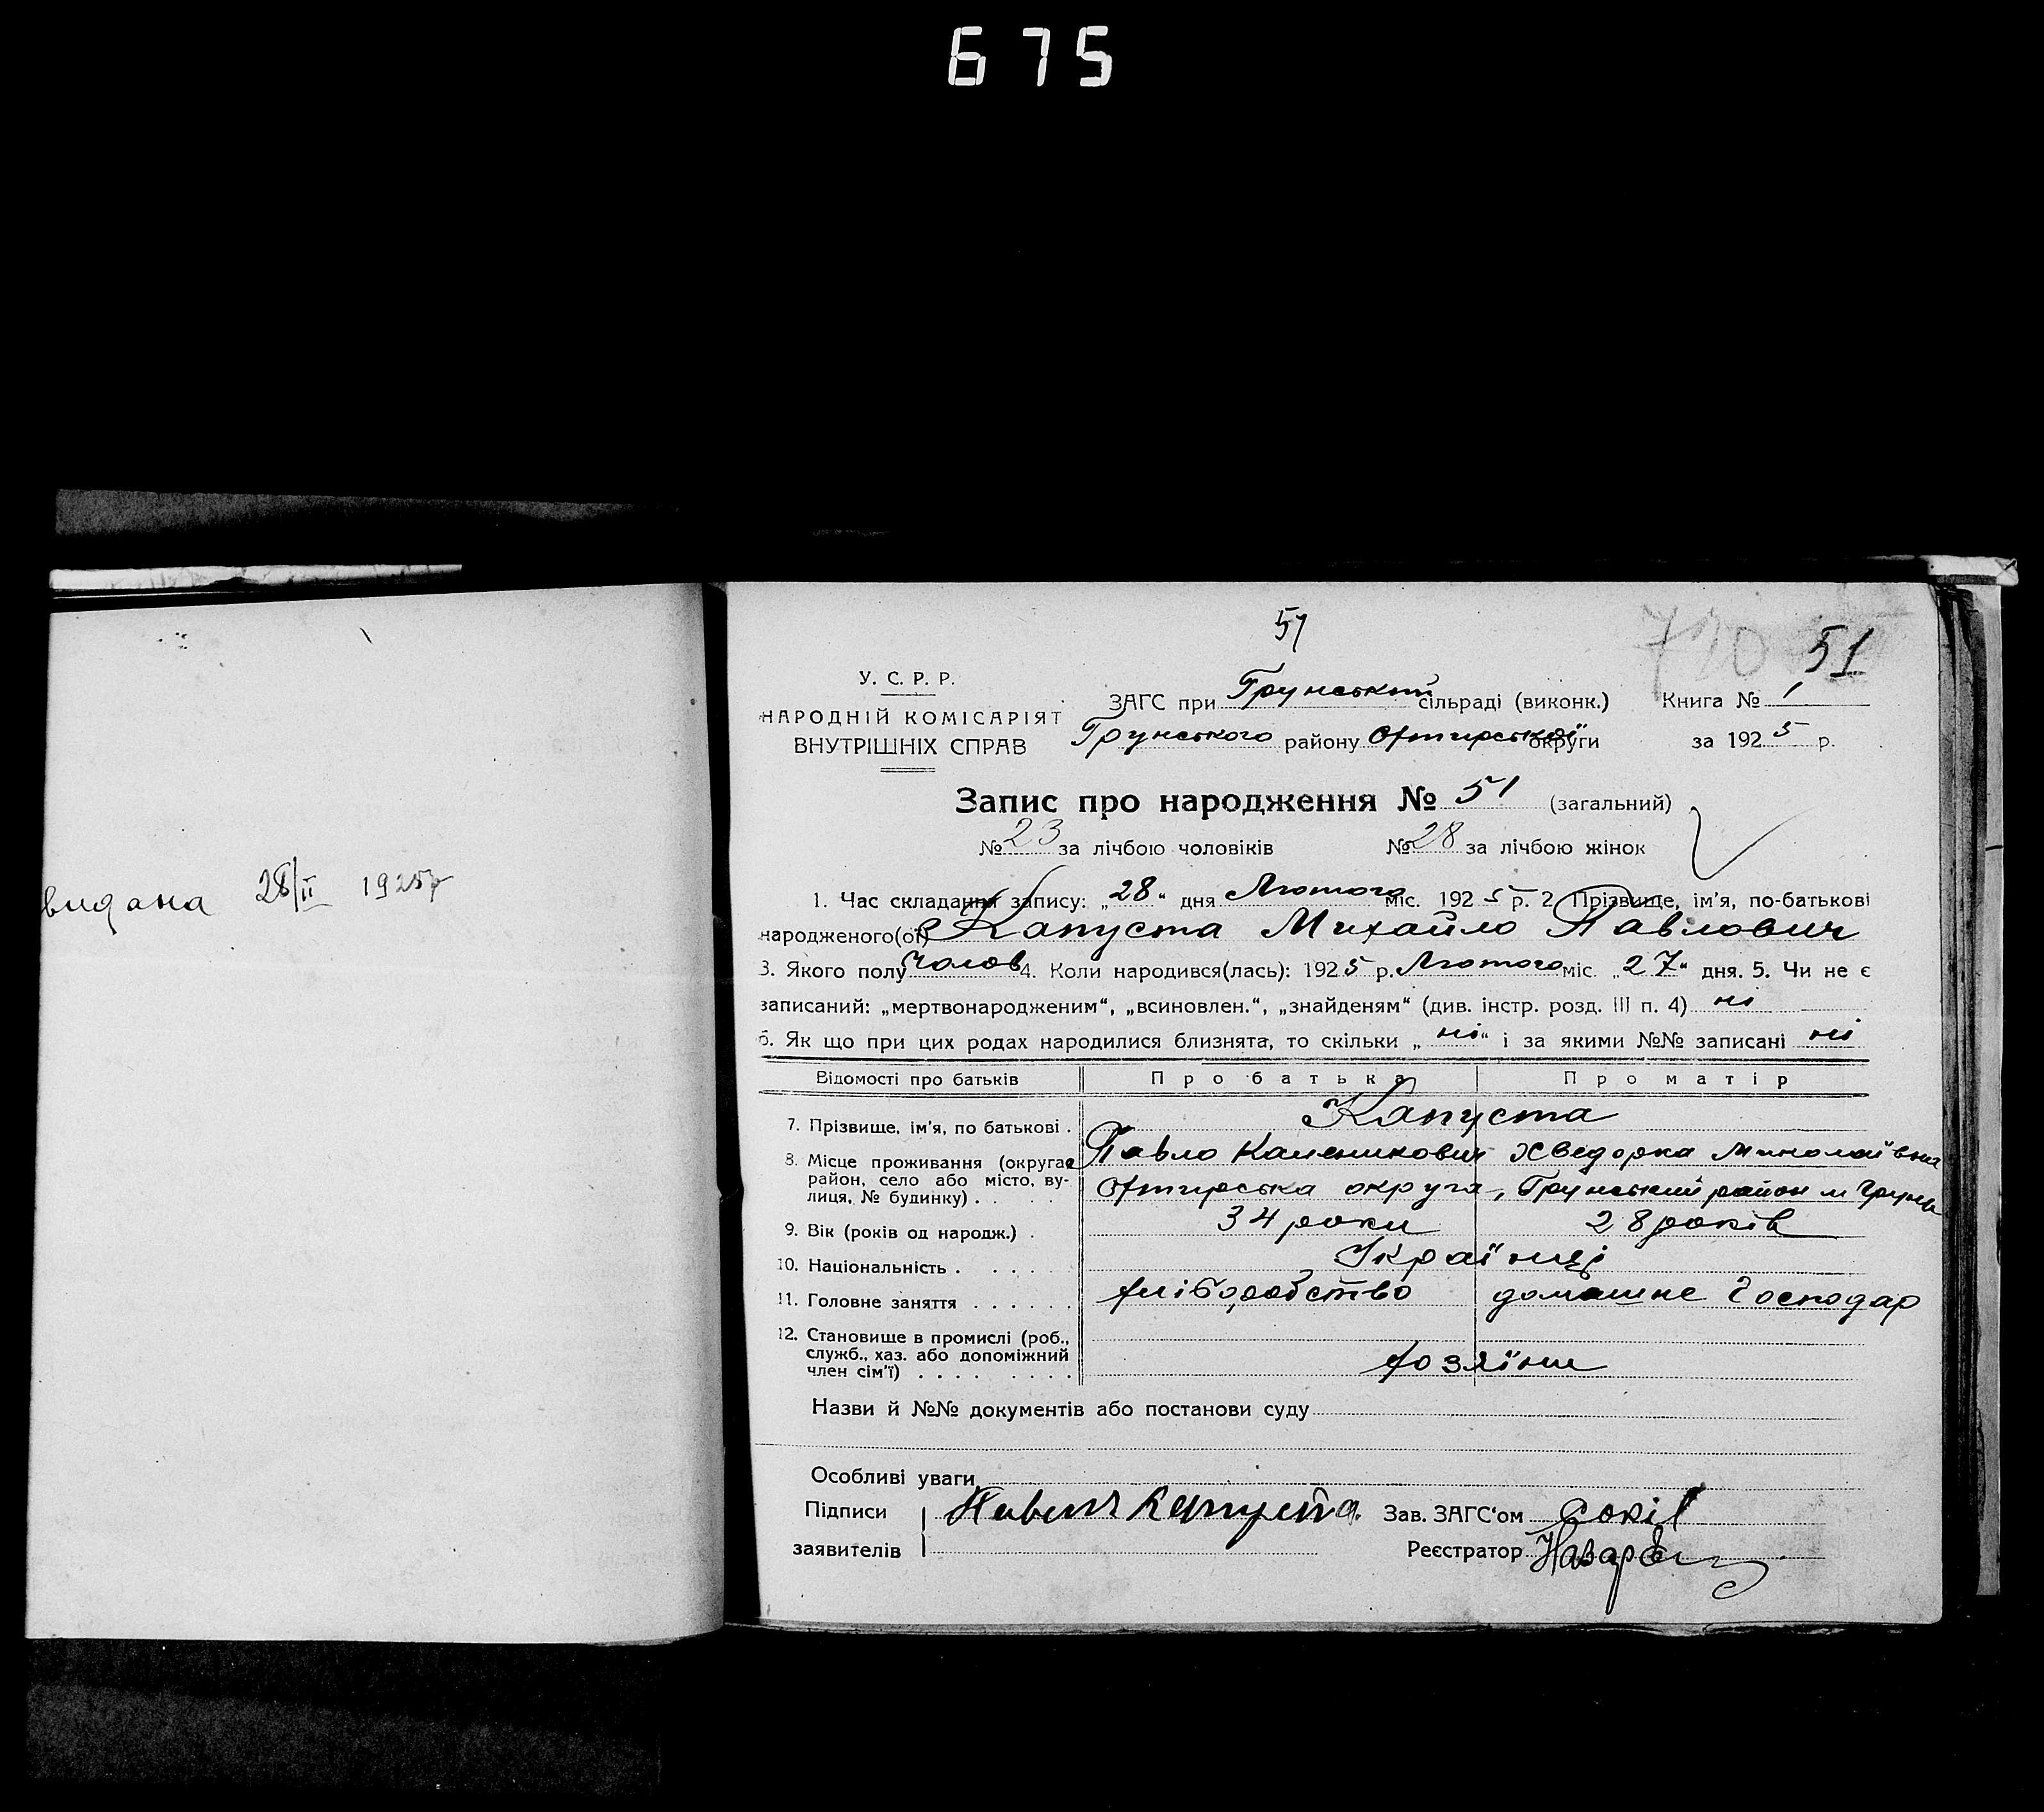 675
видана 28/II 1925р
51
710 51
У. С. Р. Р.
НАРОДНІЙ КОМІСАРІЯТ
ВНУТРІШНІХ СПРАВ
ЗАГС при Грунський сільраді (виконк.) Книга № 1
Грунського району Охтирської округи за 1925 р.
Запис про народження № 51 (загальний)
№ 23 за лічбою чоловіків № 28 за лічбою жінок
1. Час складання запису: „28“ дня Лютого міс. 1925 р. 2 Прізвище, ім'я, по-батькові
народженого(ої) Капуста Михайло Павлович
3. Якого полу Чолов 4. Коли народився(лась): 1925 р. Лютого міс. „27“ дня. 5. Чи не є
записаний: „мертвонародженим“, „всиновлен.“, „знайденям“ (див. інстр. розд. III п. 4) ні
6. Як що при цих родах народилися близнята, то скільки „ні“ і за якими №№ записані ні
Відомості про батьків Про батька Про матір
7. Прізвище, ім'я, по батькові . Капуста
Павло Каленикович Хведорка Миколаївна
8. Місце проживання (округа, район, село або місто, ву-
лиця, № будинку) . . . . Охтирська округа, Грунський район м Грунь
9. Вік (років од народж.) . 34 роки 28 років
10. Національність . . . . . Українці
11. Головне заняття . . . . . . хліборобство домашнє Господар
12. Становище в промислі (роб.,
служб., хаз. або допоміжний
член сім'ї) . . . . . . . . хозяїни
Назви й №№ документів або постанови суду
Особливі уваги
Підписи Капуста Зав. ЗАГС'ом Сокіл
заявителів Реєстратор